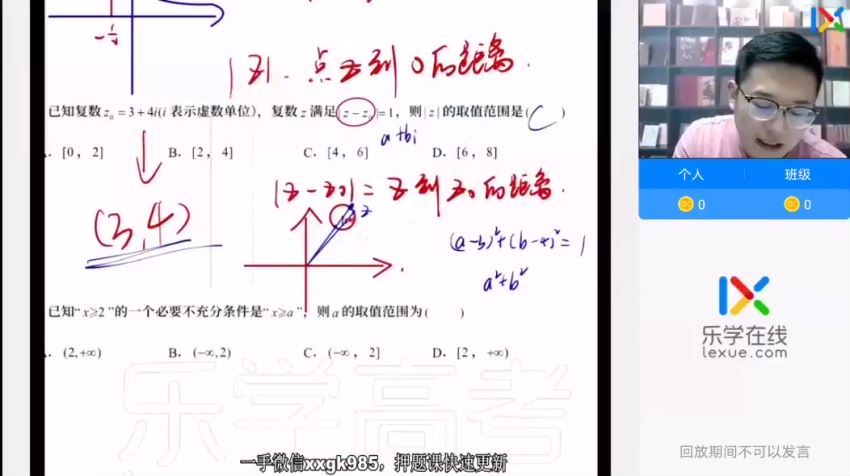 -1/4
|z|. 点z到0的距离.
已知复数z₀=3+4i(i表示虚数单位)，复数z满足|z-z₀|=1，则|z|的取值范围是( C )
a+bi
. [0，2] B. [2，4] C. [4，6] D. [6，8]
|z-z₀|=z到z₀的距离.
(3,4)
z
(a-3)²+(b-4)²=1
a²+b²
已知“x⩾2”的一个必要不充分条件是“x⩾a”，则a的取值范围为( )
. (2,+∞) B. (-∞,2) C. (-∞，2] D. [2，+∞)
乐学高考
一手微信xxgk985，押题课快速更新
个人 班级
0 0
乐学在线
lexue.com
回放期间不可以发言